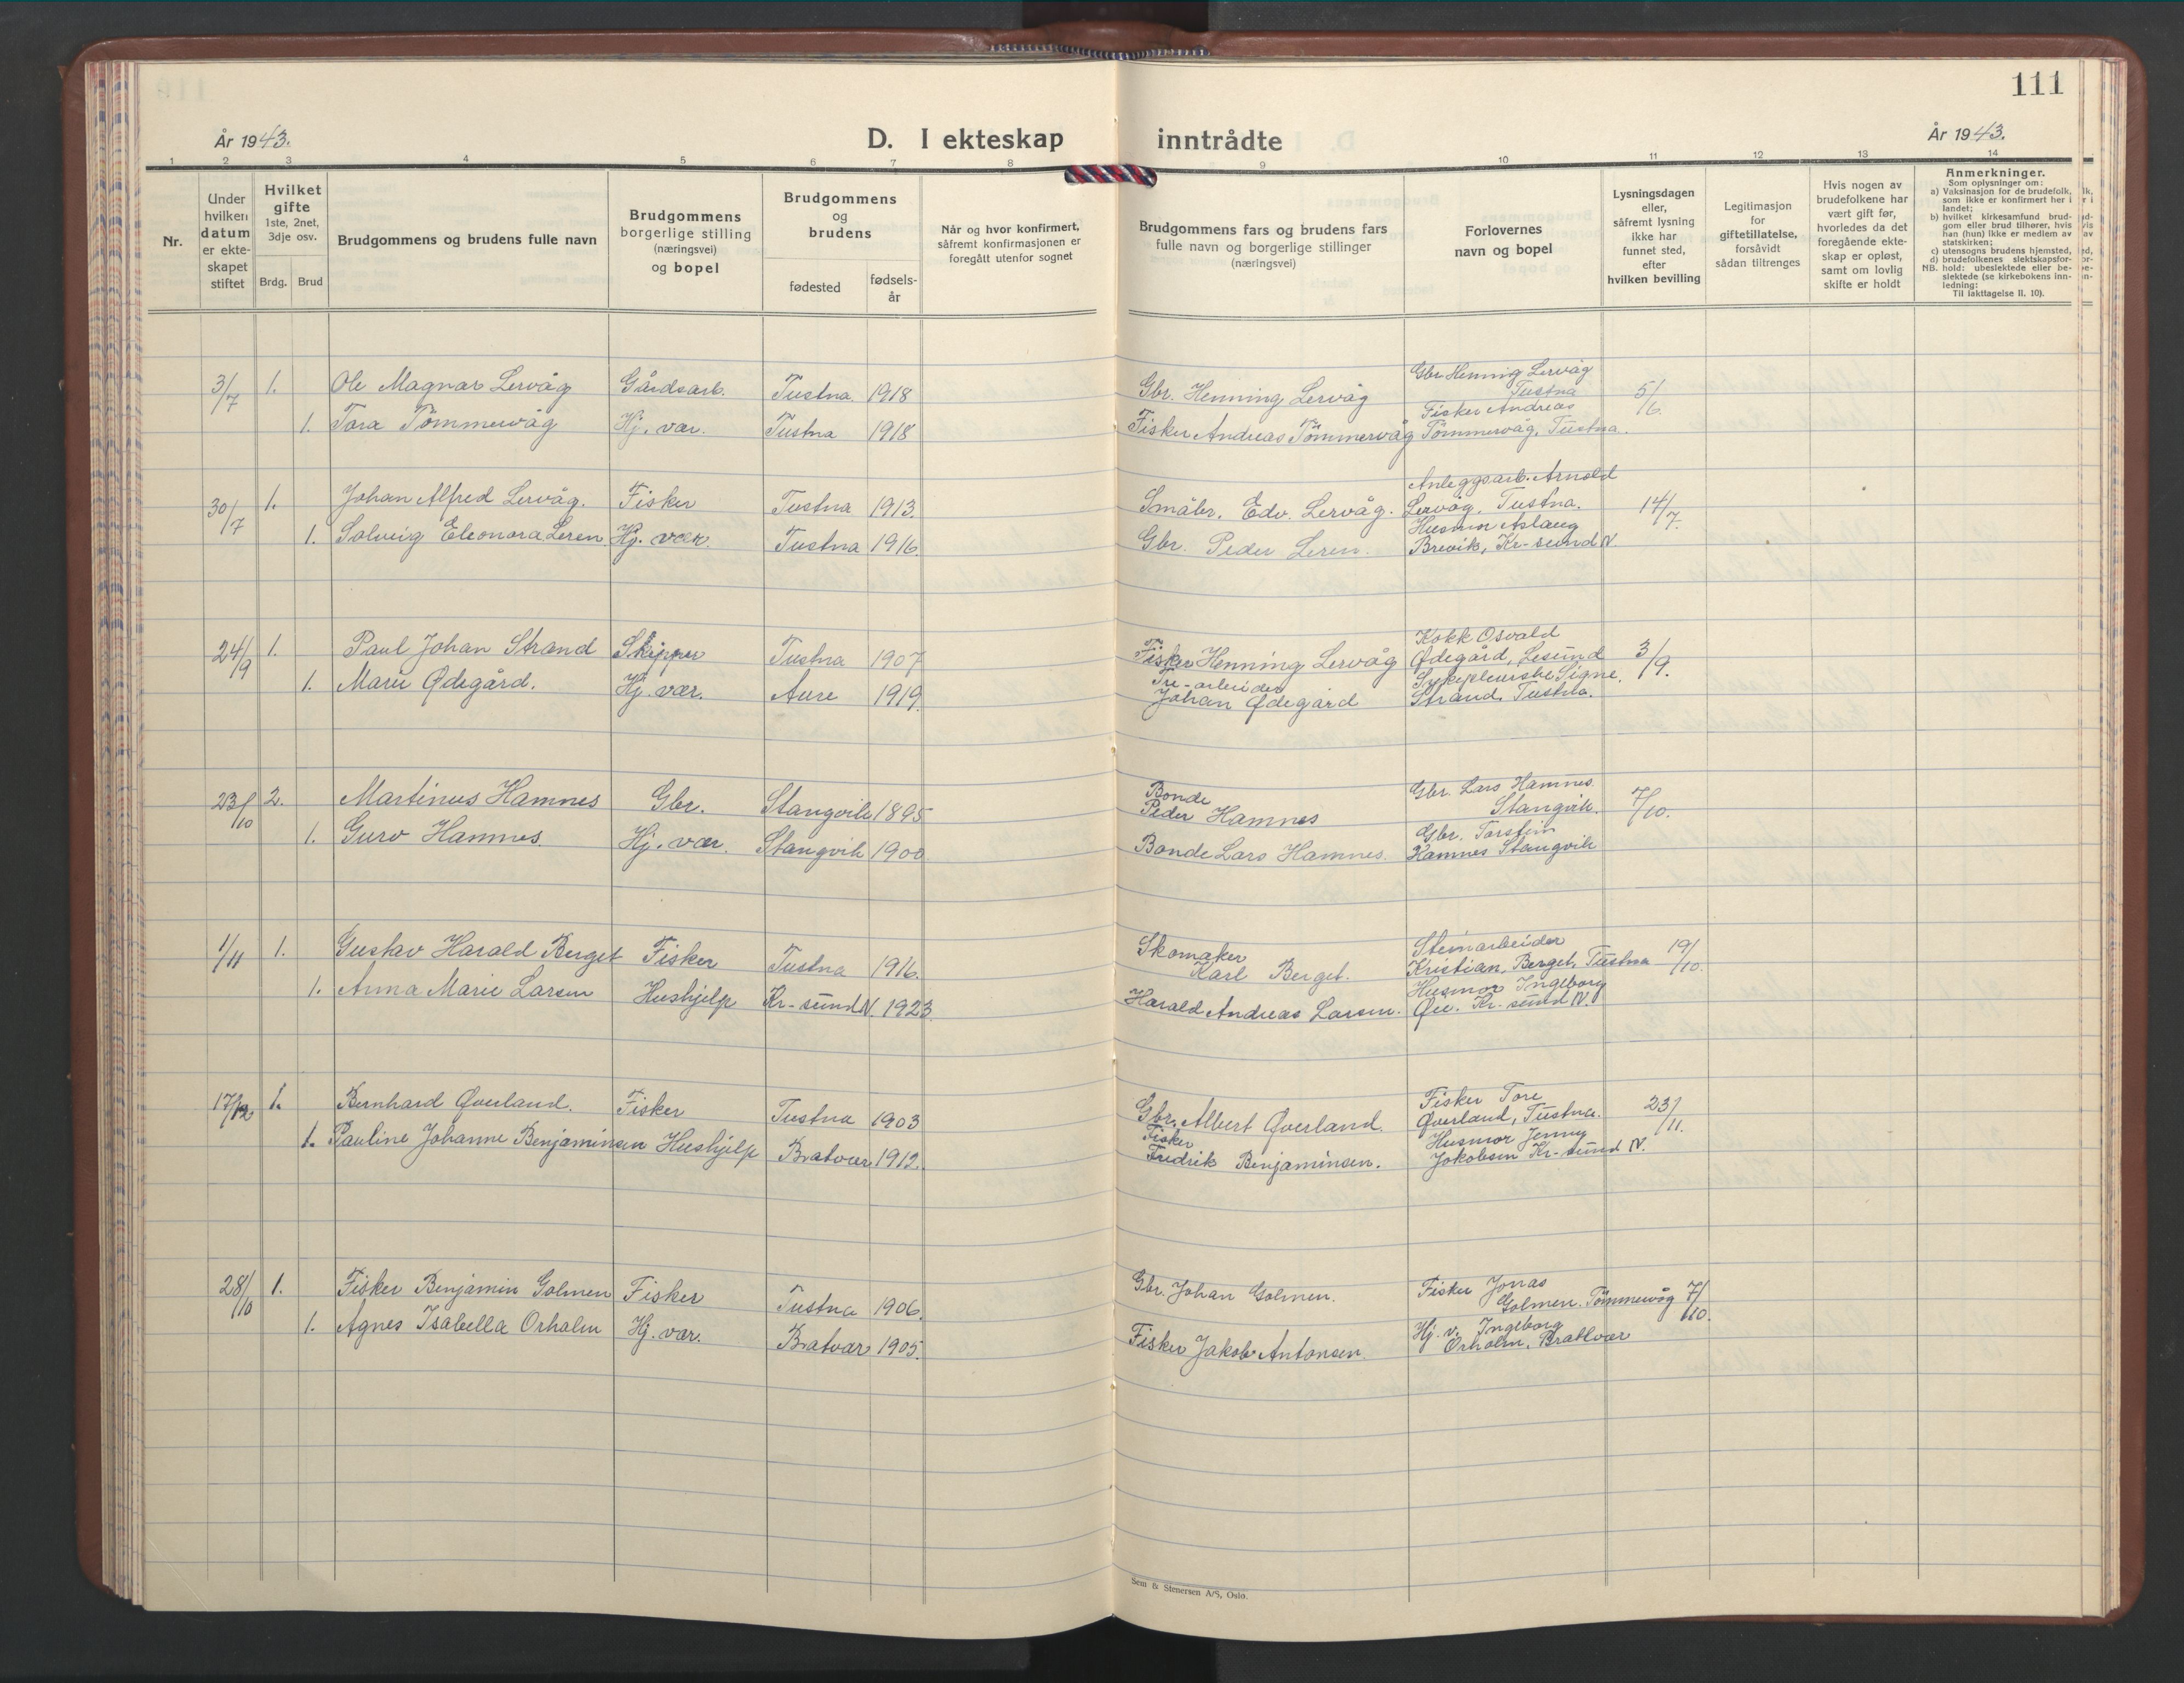 111
År 1943.
D. I ekteskap inntrådte
År 1943.
1 2 3 4 5 6 7 8 9 10 11 12 13 14
Nr.
Under
hvilken
datum
er ekte-
skapet
stiftet
Hvilket
gifte
1ste, 2net,
3dje osv.
Brdg. Brud
Brudgommens og brudens fulle navn
Brudgommens
borgerlige stilling
(næringsvei)
og bopel
Brudgommens
og
brudens
fødested
fødsels-
år
Når og hvor konfirmert,
såfremt konfirmasjonen er
foregått utenfor sognet
Brudgommens fars og brudens fars
fulle navn og borgerlige stillinger
(næringsvei)
Forlovernes
navn og bopel
Lysningsdagen
eller,
såfremt lysning
ikke har
funnet sted,
efter
hvilken bevilling
Legitimasjon
for
giftetillatelse,
forsåvidt
sådan tiltrenges
Hvis nogen av
brudefolkene har
vært gift før,
hvorledes da det
foregående ekte-
skap er opløst,
samt om lovlig
skifte er holdt
Anmerkninger.
Som oplysninger om:
a) Vaksinasjon for de brudefolk,
som ikke er konfirmert her i
landet;
b) hvilket kirkesamfund brud-
gom eller brud tilhører, hvis
han (hun) ikke er medlem av
statskirken;
c) utensogns brudens hjemsted,
d) brudefolkenes slektskapsfor-
NB. hold: ubeslektede eller be-
slektede (se kirkebokens inn-
ledning:
Til iakttagelse II. 10).
3/7 1. Ole Magnar Lervåg Gårdsarb. Tustna 1918 Gbr. Henning Lervåg Gbr. Henning Lervåg Tustna 5/6.
1. Tora Tömmervåg Hj. vær. Tustna 1918 Fisker Andreas Tömmervåg Fisker Andreas Tömmervåg, Tustna.
30/7 1. Johan Alfred Lervåg. Fisker Tustna 1913. Småbr. Edv. Lervåg. Anleggsarb. Arnold Lervåg. Tustna. 14/7.
1. Solveig Eleonora Leren Hj. vær. Tustna 1916. Gbr. Peder Leren. Husmor Aslaug Brevik, Kr-sund N.
24/9 1. Paul Johan Strand Skipper Tustna 1907 Fisker Henning Lervåg Kokk Osvald Ødegård, Lesund 3/9.
1. Marie Ødegård. Hj. vær. Aure 1919. Tre-arbeider Johan Ødegård Sykepleierske Signe Strand, Tustna.
23/10 2. Martinus Hamnes Gbr. Stangvik 1895 Bonde Peder Hamnes Gbr. Lars Hamnes Stangvik. 7/10.
1. Guro Hamnes. Hj. vær. Stangvik 1900 Bonde Lars Hamnes. Gbr. Torstein Hamnes Stangvik
1/11 1. Gustav Harald Berget Fisker Tustna 1916. Skomaker Karl Berget. Steinarbeider Kristian Berget, Tustna 19/10.
1. Anna Marie Larsen Hushjelp Kr-sund N. 1923. Harald Andreas Larsen. Husmor Ingeborg Øie. Kr-sund N.
17/12 1. Bernhard Øverland. Fisker Tustna 1903 Gbr. Albert Øverland. Fisker Tore Øverland, Tustna. 23/11.
1. Pauline Johanne Benjaminsen Hushjelp Bratvær 1912. Fisker Fredrik Benjaminsen. Husmor Jenny Jakobsen Kr-sund N.
28/10 1. Fisker Benjamin Golmen Fisker Tustna 1906. Gbr. Johan Golmen. Fisker Jonas Golmen. Tömmervåg 7/10.
1. Agnes Isabella Orholm Hj. vær. Bratvær 1905. Fisker Jakob Antonsen. Hj. v. Ingeborg Orholm, Brattvær
Sem & Stenersen A/S, Oslo.